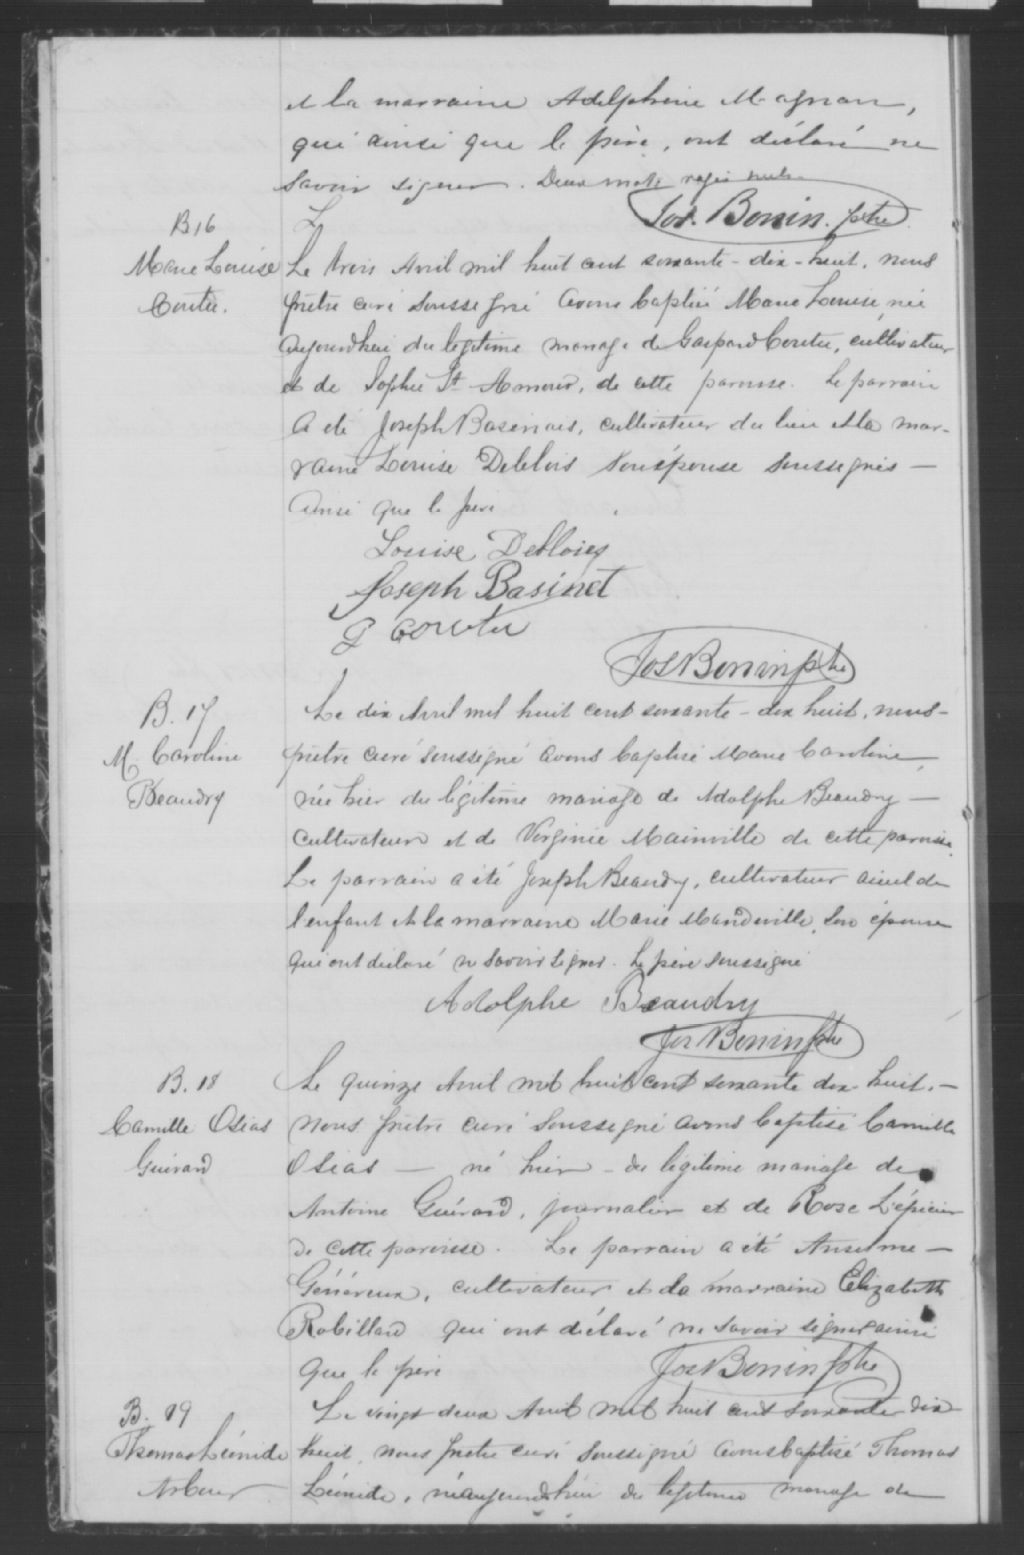 et la marraine Adelphine Magnan,
qui ainsi que le père, ont déclaré ne
savoir signer. Deux mots rayés nuls
Jos. Bonin. ptre
B16
Marie Louise
Coutu.
Le trois Avril mil huit cent soixante-dix-huit, nous
prêtre curé soussigné avons baptisé Marie Louise, née
aujourdhui du légitime mariage de Gaspard Coutu, cultivateur
et de Sophie St Amour, de cette paroisse. Le parrain
a été Joseph Basenais, cultivateur du lieu et la mar-
raine Louise Deblois son épouse soussignés —
ainsi que le père
Louise Debloies
Joseph Basinet
G Coutu
Jos Bonin ptre
B. 17
M. Caroline
Beaudry
Le dix Avril mil huit cent soixante-dix huit, nous-
prêtre curé soussigné avons baptisé Marie Caroline,
née hier du légitime mariage de Adolphe Beaudry —
cultivateur et de Virginie Mainville de cette paroisse.
Le parrain a été Joseph Beaudry, cultivateur aieul de
l'enfant et la marraine Marie Mandeville, son épouse
qui ont déclaré ne savoir signer. Le père soussigné
Adolphe Beaudry
Jos Bonin ptre
B. 18
Camille Osias
Guérard
Le quinze Avril mil huit cent soixante dix-huit. —
nous prêtre curé soussigné avons baptisé Camille
Osias — né hier - du légitime mariage de
Antoine Guérard, journalier et de Rose L'épicier
de cette paroisse. Le parrain a été Anselme —
Généreux, cultivateur et la marraine Elizabeth
Robillard qui ont déclaré ne savoir signer ainsi
que le père
Jos Bonin ptre
B. 19
Thomas Léonide
Arbour
Le vingt deux Avril mil huit cent soixante dix
huit, nous prêtre curé soussigné avons baptisé Thomas
Léonide, né aujourd'hui du légitime mariage de